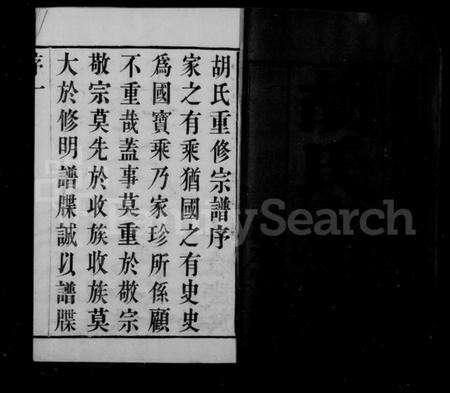 胡氏重修宗譜序
家之有乘猶國之有史史
爲國寶乘乃家珍所係顧
不重哉蓋事莫重於敬宗
敬宗莫先於收族收族莫
大於修明譜牒誠以譜牒
序一
FamilySearch